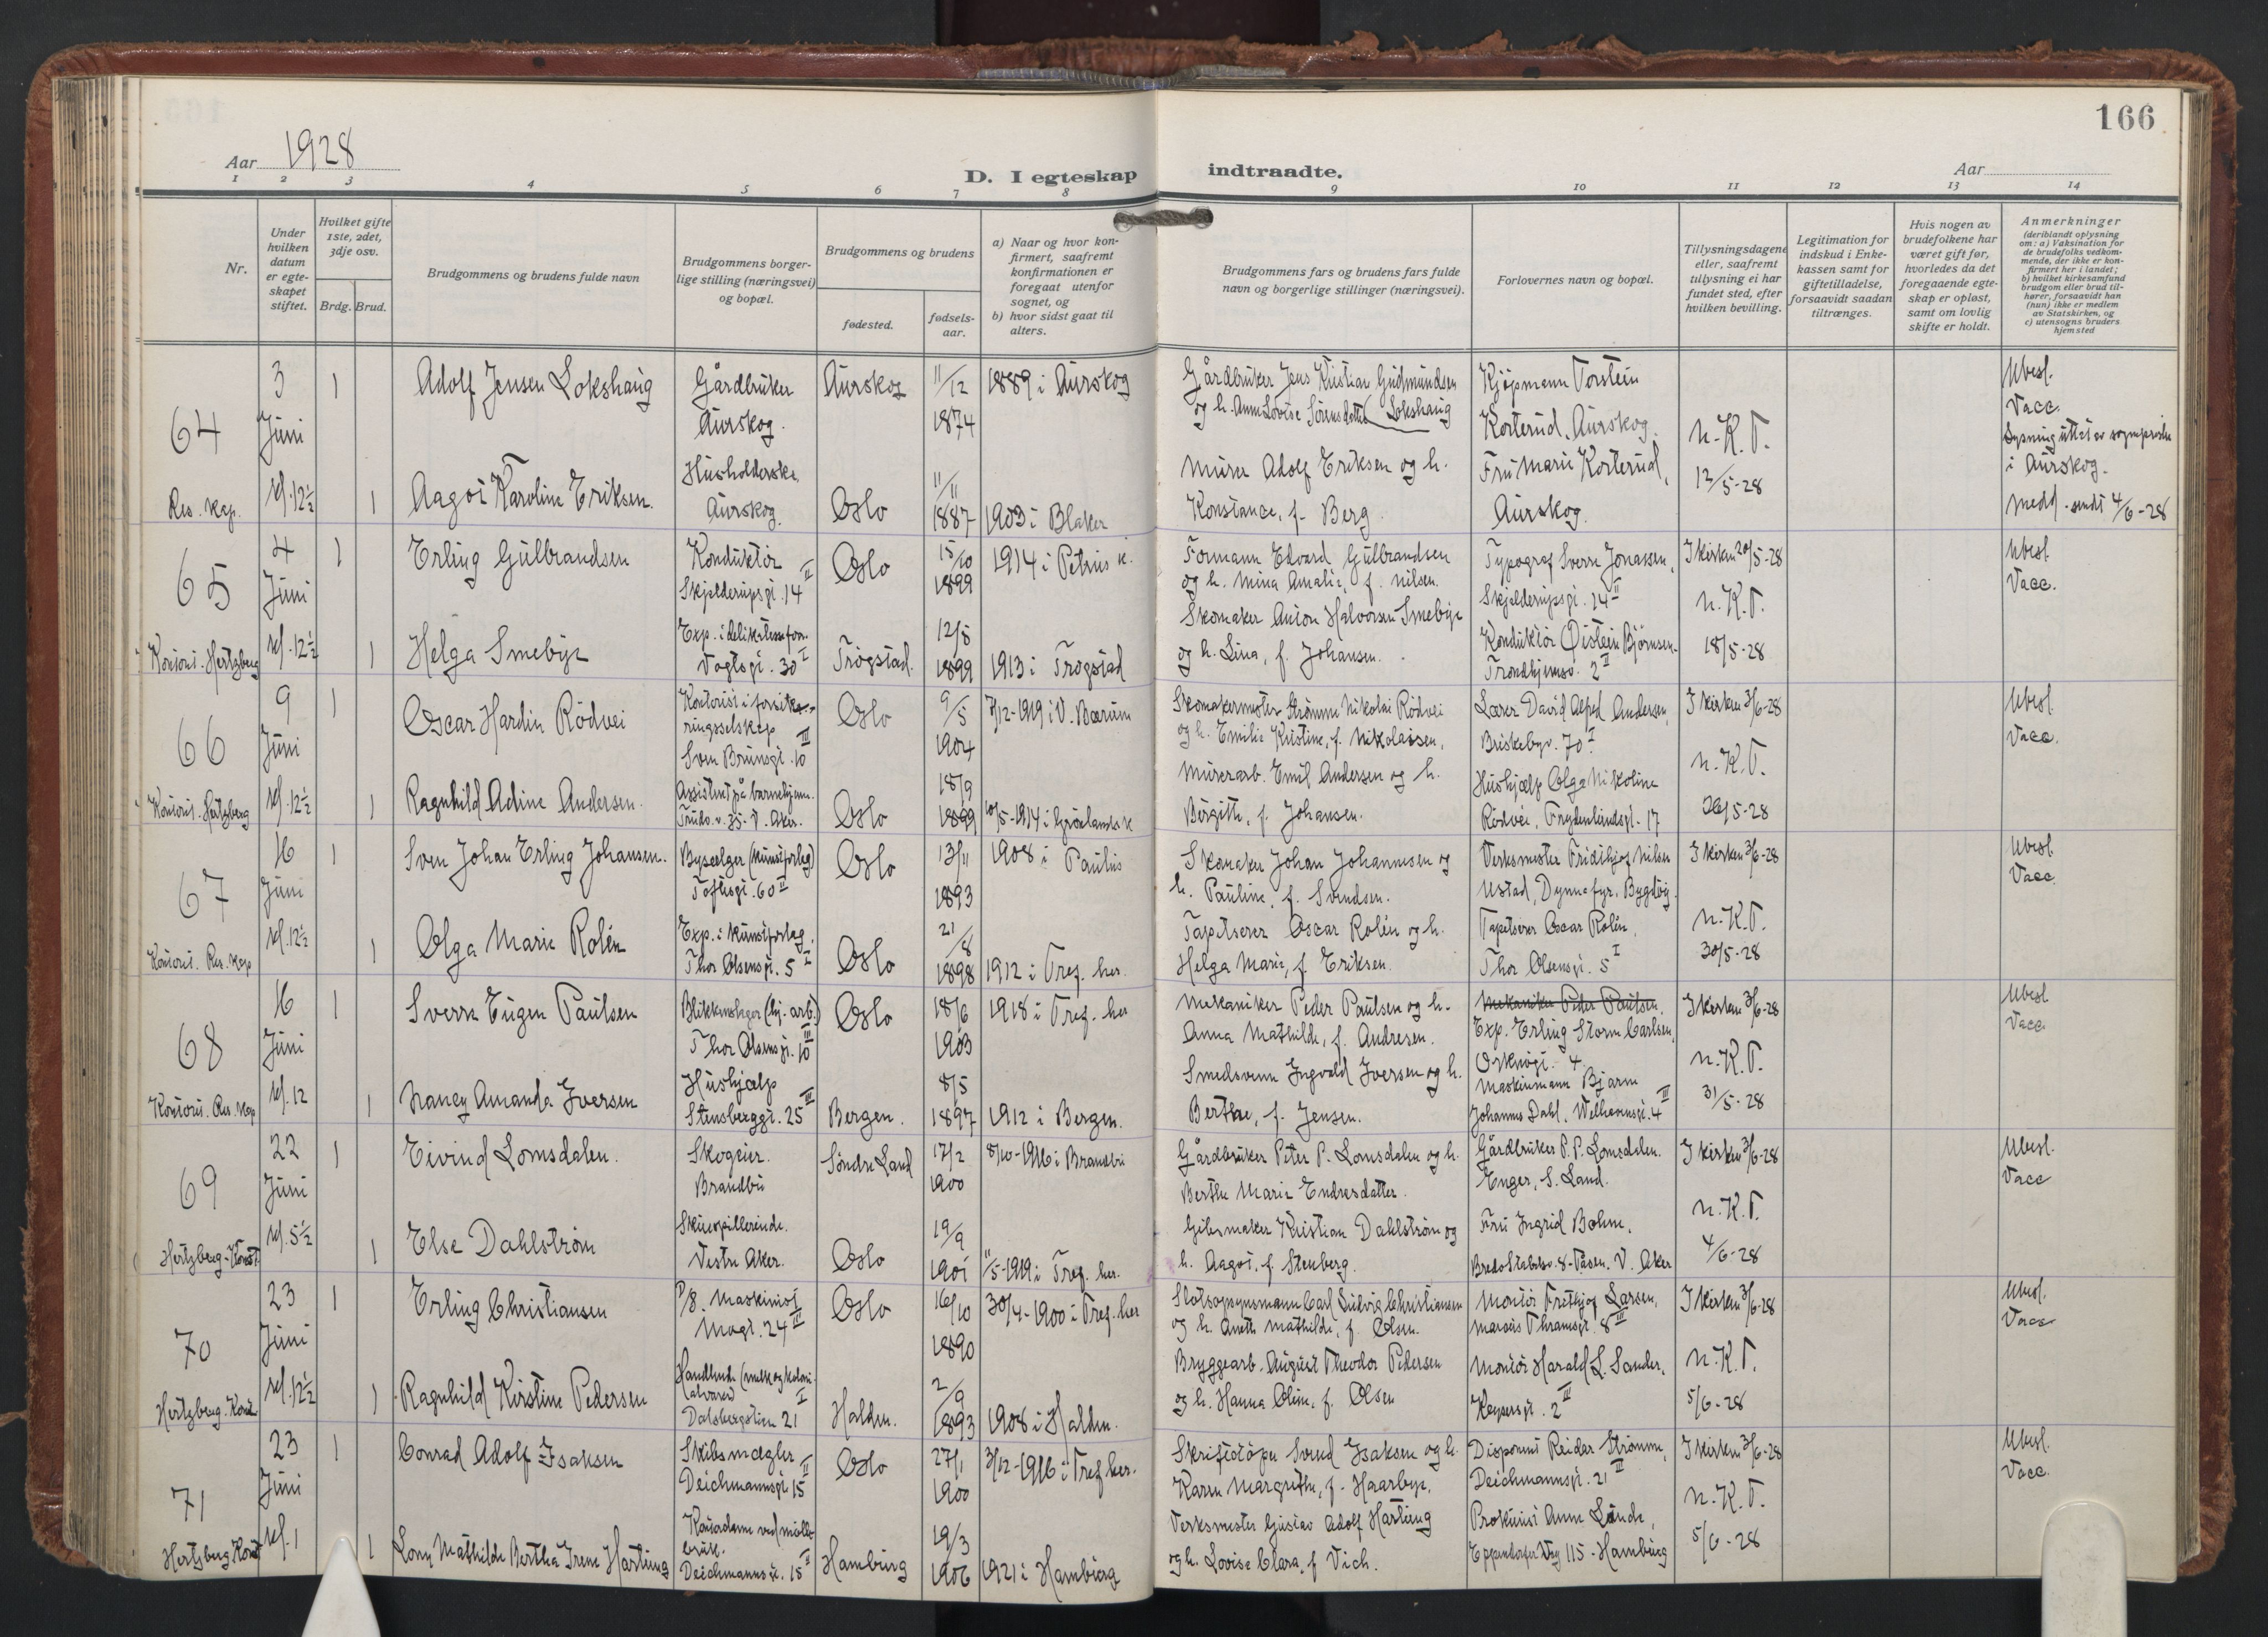 166
Aar 1928
D. I egteskap indtraadte.
Aar
1 2 3 4 5 6 7 8 9 10 11 12 13 14
Nr.
Under hvilken datum er egte-skapet stiftet.
Hvilket gifte 1ste, 2det, 3dje osv.
Brdg. Brud.
Brudgommens og brudens fulde navn
Brudgommens borger-lige stilling (næringsvei) og bopæl.
Brudgommens og brudens
fødested.
fødsels-aar.
a) Naar og hvor kon-firmert, saafremt konfirmationen er foregaat utenfor sognet, og
b) hvor sidst gaat til alters.
Brudgommens fars og brudens fars fulde navn og borgerlige stillinger (næringsvei).
Forlovernes navn og bopæl.
Tillysningsdagene eller, saafremt tillysning ei har fundet sted, efter hvilken bevilling.
Legitimation for indskud i Enke-kassen samt for giftetilladelse, forsaavidt saadan tiltrænges.
Hvis nogen av brudefolkene har været gift før, hvorledes da det foregaaende egte-skap er opløst, samt om lovlig skifte er holdt.
Anmerkninger
(deriblandt oplysning om: a) Vaksination for de brudefolks vedkom-mende, der ikke er kon-firmert her i landet; b) hvilket kirkesamfund brudgom eller brud til-hører, forsaavidt han (hun) ikke er medlem av Statskirken, og c) utensogns bruders hjemsted
64
Res. Kap.
3 Juni kl. 12½
1
Adolf Jensen Lokshaug
Gårdbruker Aurskog.
Aurskog
11/12 1874
1889 i Aurskog
Gårdbruker Jens Kristian Gudmundsen
og h. Anne Lovise Sørensdatter (Lokshaug
Kjøpmann Torstein
Korterud, Aurskog.
n.K.T.
12/5-28
Ubesl.
Vacc.
i Aurskog.
Medd. sendt 4/6-28
1
Aagot Karoline Eriksen.
Husholderske, Aurskog.
Oslo
11/11 1887
1903 i Blaker
Murer Adolf Eriksen og h.
Konstance, f. Berg
Fru Marie Korterud,
Aurskog.
65
Konst. Hertzberg
4 Juni kl. 12½
1
Erling Gulbrandsen
Konduktør
Skjelderupsgt. 14 II
Oslo
15/10 1899
1914 i Petrus k.
Formann Edvard Gulbrandsen
og h. Mina Amalie, f. Nilsen.
Typograf Sverre Jonassen,
Skjelderupsgt. 14 II
I kirken 20/5-28
n.K.T.
18/5-28
Ubesl.
Vacc.
1
Helga Smebye
Exp. i delikatessefor.
Vogtsgt. 30 I
Trøgstad.
12/8 1899
1913 i Trøgstad
Skomaker Anton Halvorsen Smebye
og h. Lina, f. Johansen.
Konduktør Øistein Bjørnsen
Trondhjemsv. 2 II
66
Konst. Hertzberg
9 Juni kl. 12½
1
Oscar Hardin Rødvei
Kontorist i forsikringsselskap
Sven Brunsgt. 10 III
Oslo
9/5 1904
7/12-1919 i V. Bærum
Skomakermester Strømme Nikolai Rødvei
og h. Emilie Kristine, f. Nikolaisen,
Lærer David Alfred Andersen,
Briskebyv. 70 I
I kirken 3/6-28
n.K.T.
26/5-28
Ubesl.
Vacc.
1
Ragnhild Adine Andersen.
Assistent på barnehjem.
Oslo
18/9 1899
10/5-1914 i Grønlands k
Murerarb. Emil Andersen og h.
Birgitte, f. Johansen.
Hushjælp Olga Nikoline
Rødvei, Frydenlundsgt. 17
67
Konst. Res. Kap
16 Juni kl. 12½
1
Sven Johan Erling Johansen.
Bysælger (kunstforlag)
Toftesgt. 60 II
Oslo
13/11 1893
1908 i Paulus
Skomaker Johan Johannesen og
h. Pauline, f. Svendsen.
Verksmester Fridthjof Nilsen
Ustad, Dynna fyr. Bygdøy.
I kirken 3/6-28
n.K.T.
30/5-28
Ubesl.
Vacc.
1
Olga Marie Rolén
Exp. i kunstforlag,
Thor Olsensgt. 5 I
Oslo
21/8 1898
1912 i Tref. her.
Tapetserer Oscar Rolén og h.
Helga Marie, f. Eriksen.
Tapetserer Oscar Rolén,
Thor Olsensgt. 5 I
68
Konst. Res. Kap
16 Juni kl. 12
1
Sverre Eugen Paulsen
Blikkenslager (hj. arb.)
Thor Olsensgt. 10 III
Oslo
18/6 1903
1918 i Tref. her
Mekaniker Peder Paulsen og h.
Anna Mathilde, f. Andresen.
Mekaniker Peder Paulsen.
Exp. Erling Storm Carlsen,
I kirken 3/6-28
n.K.T.
31/5-28
Ubesl
Vacc.
1
Nancy Amanda Iversen
Hushjælp
Stensberggt. 25 III
Bergen.
8/5 1897
1912 i Bergen.
Smedsvenn Ingvald Iversen og h.
Berthe, f. Jensen.
Maskinmann Bjarne
Johannes Dahl, Welhavensgt. 4 III
69
Hertzberg-Konst
22 Juni kl. 5½
1
Eivind Lomsdalen.
Skogeier.
Brandbu
Søndre Land
17/2 1900
8/10-1916 i Brandbu
Gårdbruker Peter P. Lomsdalen og h.
Berthe Marie Endresdatter.
Gårdbruker P. P. Lomsdalen.
Enger, S. Land.
I kirken 3/6-28
n.K.T.
4/6-28
Ubesl.
Vacc
1
Else Dahlstrøm
Skuespillerinde.
Vestre Aker.
Oslo
19/9 1901
11/5-1919 i Tref. her.
Gibsmaker Kristian Dahlstrøm og
h. Aagot, f. Stenberg.
Fru Ingrid Bohne,
Bredo Stabelsv. 8 - Tåsen. V. Aker
70
Hertzberg. Konst
23 Juni kl. 12½
1
Erling Christiansen
Maskinist
Mogt. 24 III
Oslo
16/10 1890
30/4-1900 i Tref. her
Slotsopsynsmann Carl Ludvig Christiansen
og h. Anette Mathilde, f. Olsen.
Montør Frithjof Larsen,
Marcus Thranesgt. 8 III
I kirken 3/6-28
n.K.T.
5/6-28
Ubesl.
Vacc
1
Ragnhild Kirstine Pedersen
Dalsbergstien 21 I
Halden.
2/9 1893
1908 i Halden.
Bryggearb. August Theodor Pedersen
og h. Hanna Oline, f. Olsen
Montør Harald L. Sander,
Keysersgt. 2 III
71
Hertzberg Konst
23 Juni kl. 1
1
Conrad Adolf Isaksen
Skibsmægler
Deichmannsgt 15 II
Oslo
27/1 1900
3/12-1916 i Tref her.
Skriftstøper Svend Isaksen og h.
Karen Margrethe, f. Haarbye.
Disponent Reidar Strømme,
Deichmannsgt. 21 II
I kirken 3/6-28
n.K.T.
5/6-28
Ubesl.
Vacc.
1
Lony Mathilde Bertha Irene Hartung
Deichmannsgt. 15 II
Hamburg
19/3 1906
1921 i Hamburg
Verksmester Gustav Adolf Hartung
og h. Lovise Clara, f Vich.
Prokurist Anne Lunde,
Eppendorfer Weg 115 - Hamburg